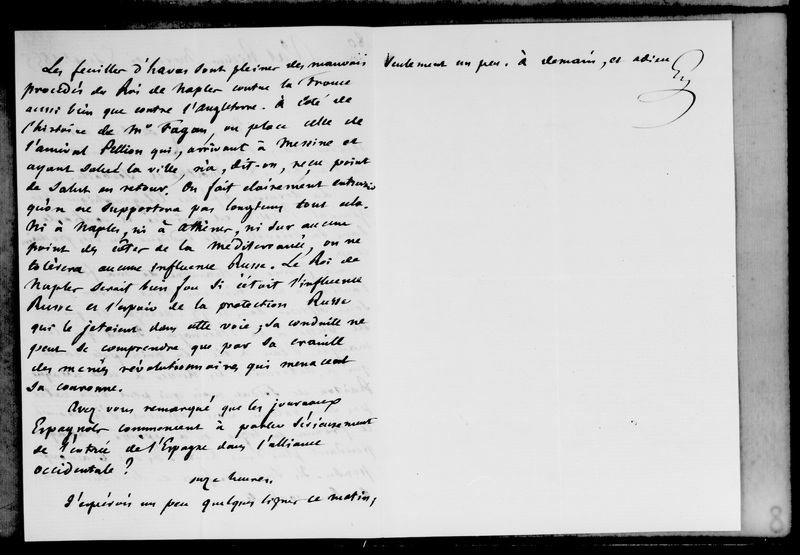 Les feuilles d'havas sont pleines des mauvais
procédés du Roi de Naples contre la France
aussi bien que contre l'Angleterre. À côté de
l'histoire de Mr Fagan, on place celle de
l'amiral Pellion qui, arrivant à Messine et
ayant salué la ville, n'a, dit-on, reçu point
de salut en retour. On fait clairement entendre
qu'on ne supportera pas longtems tout cela.
Ni à Naples, ni à Athènes, ni sur aucun
point des côtes de la Méditerranée, on ne
tolérera aucune influence Russe. Le Roi de
Naples serait bien fou si c'était l'influence
Russe et l'espoir de la protection Russe
qui le jetaient dans cette voie ; sa conduite ne
peut se comprendre que par sa crainte
des menées révolutionnaires qui menacent
sa couronne.
Avez vous remarqué que les journaux
Espagnols commencent à parler sérieusement
de l'entrée de l'Espagne dans l'alliance
occidentale ?
onze heures.
J'espérois un peu quelques lignes ce matin ;
Seulement un peu. à demain, et adieu
8